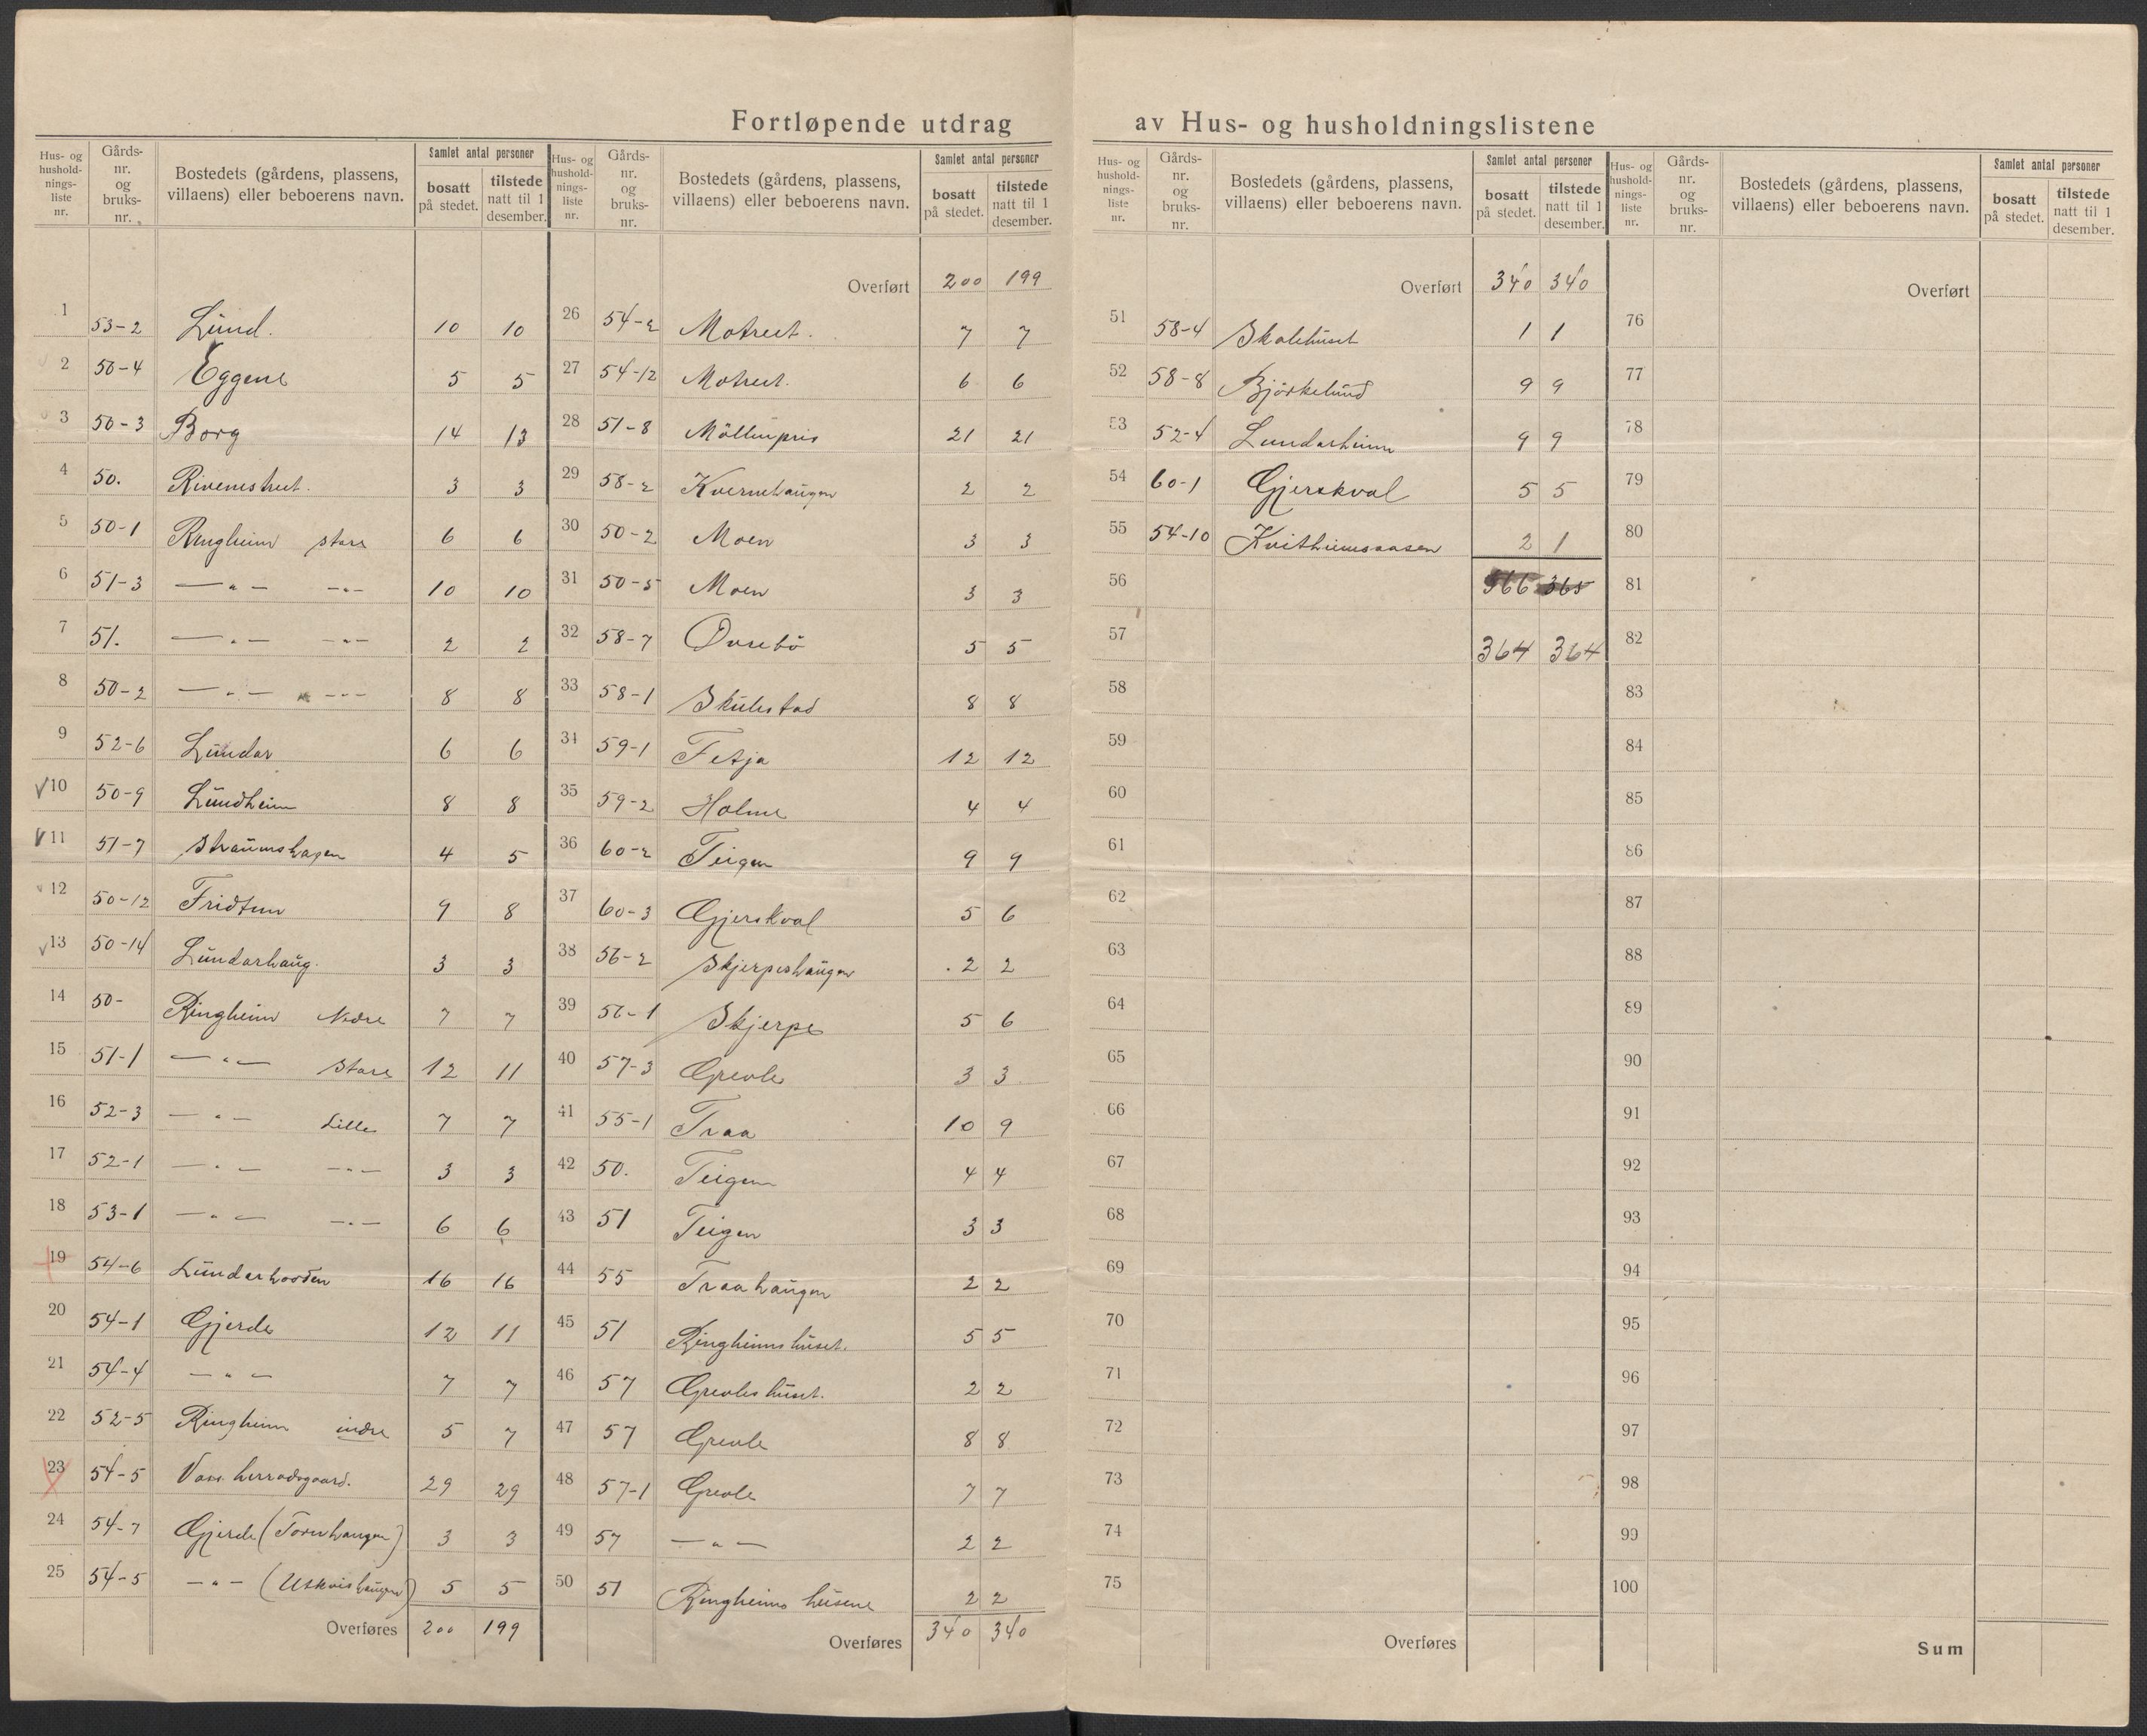 Fortløpende utdrag av Hus- og husholdningslistene
Hus- og husholdnings- liste nr. | Gårds- nr. og bruks- nr. | Bostedets (gårdens, plassens, villaens) eller beboerens navn. | Samlet antal personer | bosatt på stedet. | tilstede natt til 1 desember.
1 53-2 Lund. 10 10
2 50-4 Eggene 5 5
3 50-3 Borg 14 13
4 50. Rivenestreet. 3 3
5 50-1 Ringheim store 6 6
6 51-3 —"— -"- 10 10
7 51. —"— -"- 2 2
8 50-2 —"— -"- 8 8
9 52-6 Lundar 6 6
√10 50-9 Lundheim 8 8
√11 51-7 Straumshagen 4 5
√12 50-12 Fridtun 9 8
√13 50-14 Lundarhaug. 3 3
14 50- Ringheim Nedre 7 7
15 51-1 —"— Store 12 11
16 52-3 —"— Lille 7 7
17 52-1 —"— -"- 3 3
18 53-1 —"— -"- 6 6
19 54-6 Lundarhosden 16 16
20 54-1 Gjerde 12 11
21 54-4 —"— 7 7
22 52-5 Ringheim indre 5 7
23 54-5 Voss herradsgaard. 29 29
24 54-7 Gjerde (Tornhaugen) 3 3
25 54-5 -"- (Utkvishaugen) 5 5
Overføres 200 199
Hus- og husholdnings- liste nr. | Gårds- nr. og bruks- nr. | Bostedets (gårdens, plassens, villaens) eller beboerens navn. | Samlet antal personer | bosatt på stedet. | tilstede natt til 1 desember.
Overført 200 199
26 54-2 Motreet. 7 7
27 54-12 Motreet. 6 6
28 51-8 Möllerpris 21 21
29 58-2 Kvernehaugen 2 2
30 50-2 Moen 3 3
31 50-5 Moen 3 3
32 58-7 Övsebö 5 5
33 58-1 Skulestad 8 8
34 59-1 Fetja 12 12
35 59-2 Holme 4 4
36 60-2 Teigen 9 9
37 60-3 Gjerskval 5 6
38 56-2 Skjerpeshaugen 2 2
39 56-1 Skjerpe 5 6
40 57-3 Grevle 3 3
41 55-1 Traa 10 9
42 50. Teigen 4 4
43 51 Teigen 3 3
44 55 Traahaugen 2 2
45 51 Ringheimshuset. 5 5
46 57 Grevleshuset. 2 2
47 57 Grevle 8 8
48 57-1 Grevle 7 7
49 57 —"— 2 2
50 51 Ringheims husene 2 2
Overføres 340 340
Hus- og husholdnings- liste nr. | Gårds- nr. og bruks- nr. | Bostedets (gårdens, plassens, villaens) eller beboerens navn. | Samlet antal personer | bosatt på stedet. | tilstede natt til 1 desember.
Overført 340 340
51 58-4 Skolehuset 1 1
52 58-8 Björkelund 9 9
53 52-4 Lundarheim 9 9
54 60-1 Gjerskval 5 5
55 54-10 Kvitheimsaasen 2 1
56 366 365
57 364 364
58
59
60
61
62
63
64
65
66
67
68
69
70
71
72
73
74
75
Overføres
Hus- og husholdnings- liste nr. | Gårds- nr. og bruks- nr. | Bostedets (gårdens, plassens, villaens) eller beboerens navn. | Samlet antal personer | bosatt på stedet. | tilstede natt til 1 desember.
Overført
76
77
78
79
80
81
82
83
84
85
86
87
88
89
90
91
92
93
94
95
96
97
98
99
100
Sum